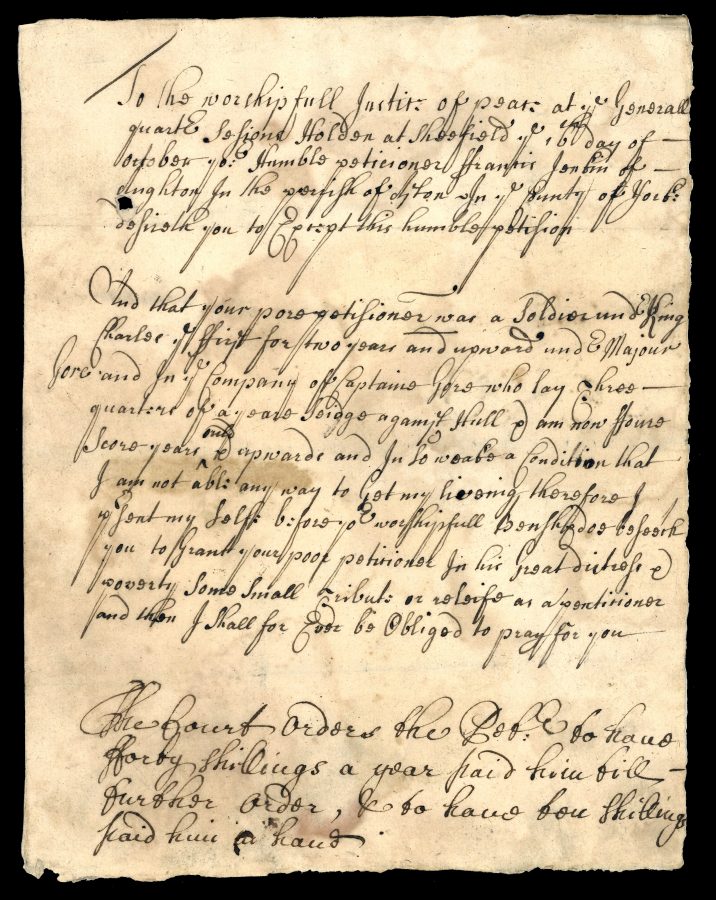 To the worshipfull Justic: of peace at ye Generall
quart Sesions Holden at Sheefield ye 16th day of
october yor: Humble peticioner ffrancis Jenkin of
aughton In the perrish of aston In ye County of York:
desireth you to Except this humble petision
And that your pore petisioner was a Soldier undr King
Charles ye ffirst for two years and upward undr Majour
Gore and In ye Company of Captaine Gore who lay Three
quarters of a yeare Seigge against Hull & am now ffoure
Score years ould & upwards and In So weake a Condition that
I am not able any way to Get my liveing therefore I
psent my Selfe before yor worshipfull and doe beseech
you to Grant your poor peticioner In his great distrese &
poverty Some Small Tribute or releife as a pentitioner
and then I shall for Ever be Obliged to pray for you
The Court orders the Petr: to have
fforty shillings a year paid him till
further order, & to have ten shillings
paid him in hand